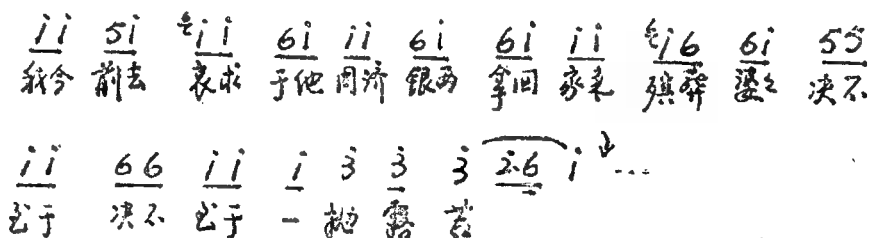 i i 5 i 6 i i i 6 i i i 6 i 6 i i i i 6 6 i 5 5
我今 前去 哀求 于他 周济 银两 拿回 家来 殡葬 婆婆 决不
i i 6 6 i i i 3 3 3 2·6 i ...
至于 决不 至于 一 抛 露